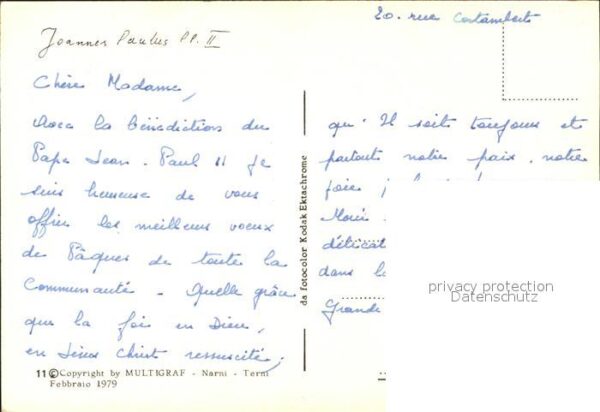 20. rue Costambert
Joannes Paulus PP. II
Chère Madame,
Avec la bénédiction du
Pape Jean-Paul II je
suis heureuse de vous
offrir les meilleurs voeux
de Pâques de toute la
Communauté. Quelle grâce
que la foi en Dieu,
en Jésus Christ ressuscité,
qu'Il soit toujours et
partout notre paix, notre
joie
délicat
dans
Grande
da fotocolor Kodak Ektachrome
11 © Copyright by MULTIGRAF - Narni - Terni
Febbraio 1979
privacy protection
Datenschutz